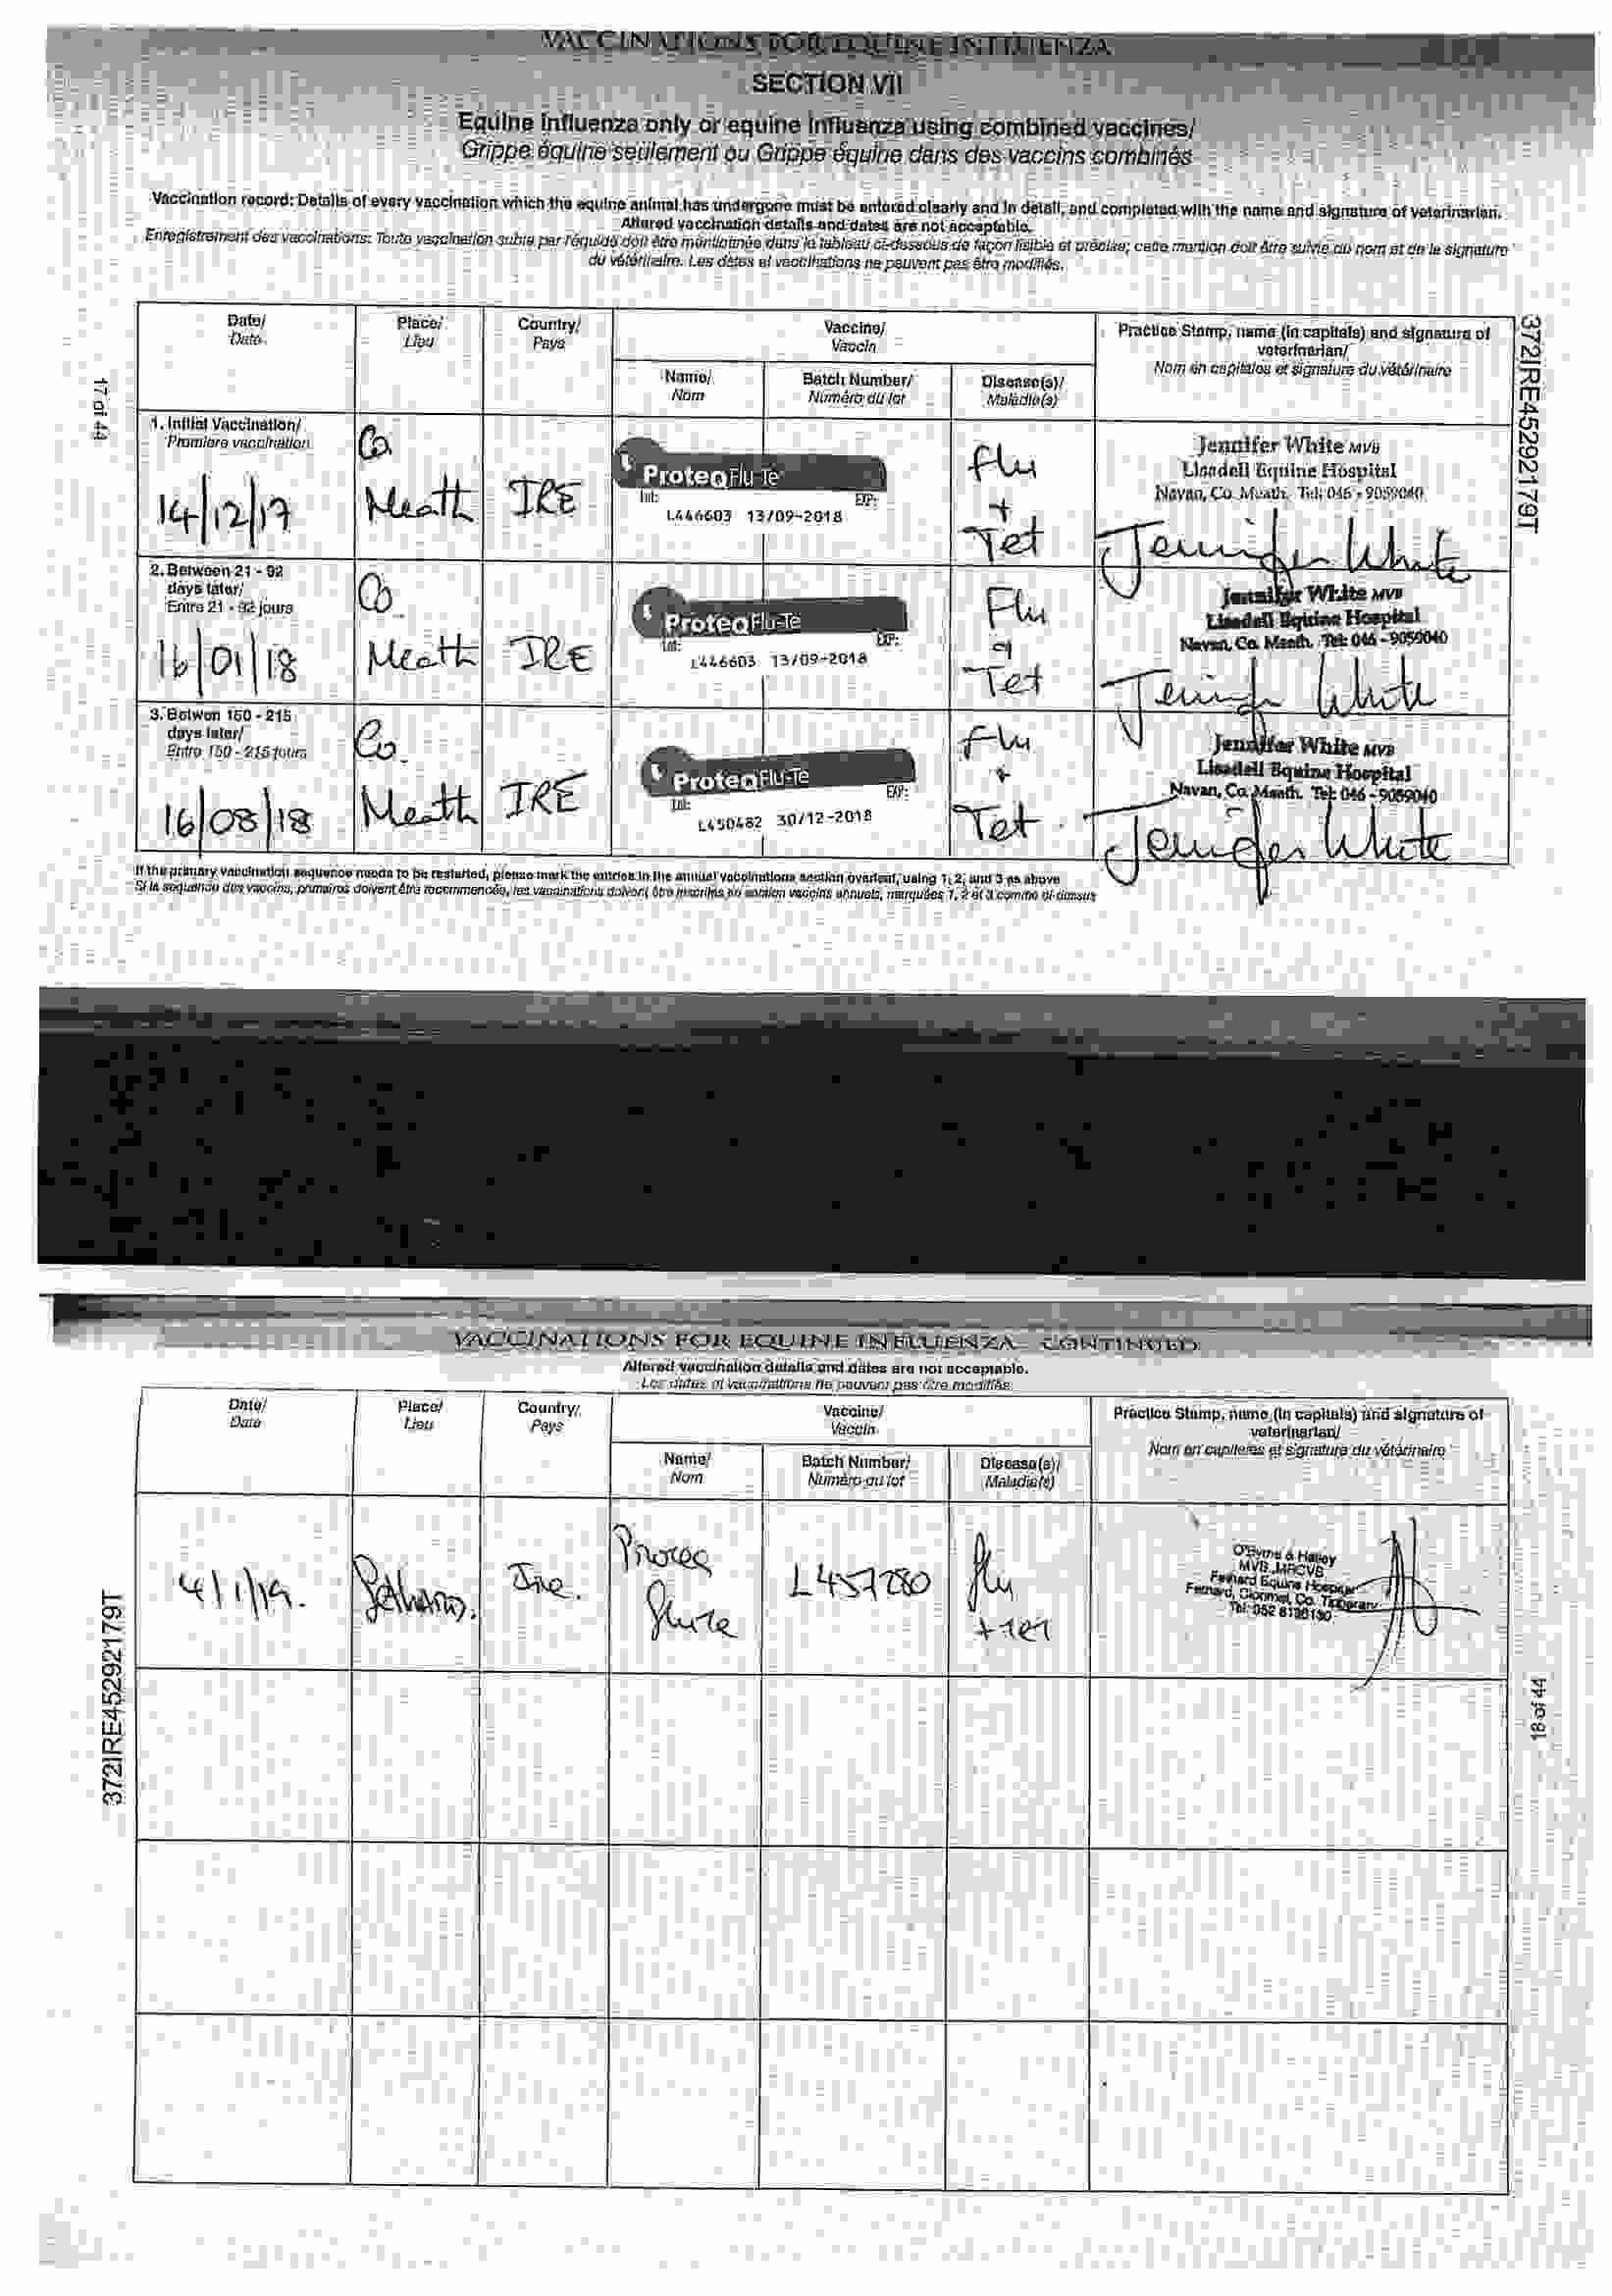 VACCINATIONS FOR EQUINE INFLUENZA
SECTION VII
Equine influenza only or equine influenza using combined vaccines/
Grippe équine seulement ou Grippe équine dans des vaccins combinés
Vaccination record: Details of every vaccination which the equine animal has undergone must be entered clearly and in detail, and completed with the name and signature of veterinarian.
Altered vaccination details and dates are not acceptable.
Enregistrement des vaccinations: Toute vaccination subie par l'équidé doit être mentionnée dans le tableau ci-dessous de façon lisible et précise; cette mention doit être suivie du nom et de la signature
du vétérinaire. Les dates et vaccinations ne peuvent pas être modifiés.
Date/ Place/ Country/ Vaccine/ Practice Stamp, name (in capitals) and signature of
Date Lieu Pays Vaccin veterinarian/
Nom en capitales et signature du vétérinaire
Name/ Batch Number/ Disease(s)/
Nom Numéro du lot Maladie(s)
17 of 44
372IRE45292179T
1. Initial Vaccination/
Première vaccination
14/12/17
Co.
Meath IRE
ProteqFlu-Te
Lot: EXP:
L446603 13/09-2018
Flu
+
Tet
Jennifer White MVB
Lisadell Equine Hospital
Navan, Co. Meath. Tel: 046 - 9059040
Jennifer White
2. Between 21 - 92
days later/
Entre 21 - 92 jours
16/01/18
Co.
Meath IRE
ProteqFlu-Te
Lot: EXP:
L446603 13/09-2018
Flu
Tet
Jennifer White MVB
Lisadell Equine Hospital
Navan, Co. Meath. Tel: 046 - 9059040
Jennifer White
3. Betwen 150 - 215
days later/
Entre 150 - 215 jours
16/08/18
Co.
Meath IRE
ProteqFlu-Te
Lot: EXP:
L450482 30/12-2018
Flu
+
Tet
Jennifer White MVB
Lisadell Equine Hospital
Navan, Co. Meath. Tel: 046 - 9059040
Jennifer White
If the primary vaccination sequence needs to be restarted, please mark the entries in the annual vaccinations section overleaf, using 1, 2, and 3 as above
Si la séquence des vaccins, primaires doivent être recommencés, les vaccinations doivent être inscrites en section vaccins annuels, marquées 1, 2 et 3 comme ci-dessus
VACCINATIONS FOR EQUINE INFLUENZA CONTINUED
Altered vaccination details and dates are not acceptable.
Les dates et vaccinations ne peuvent pas être modifiés
Date/ Place/ Country/ Vaccine/ Practice Stamp, name (in capitals) and signature of
Date Lieu Pays Vaccin veterinarian/
Nom en capitales et signature du vétérinaire
Name/ Batch Number/ Disease(s)/
Nom Numéro du lot Maladie(s)
4/1/19.
Ire.
Proteq
L457280
Flu
+ Tet
O'Byrne & Halley
MVB MRCVS
Fethard Equine Hospital
Fethard, Clonmel, Co. Tipperary
372IRE45292179T
18 of 44